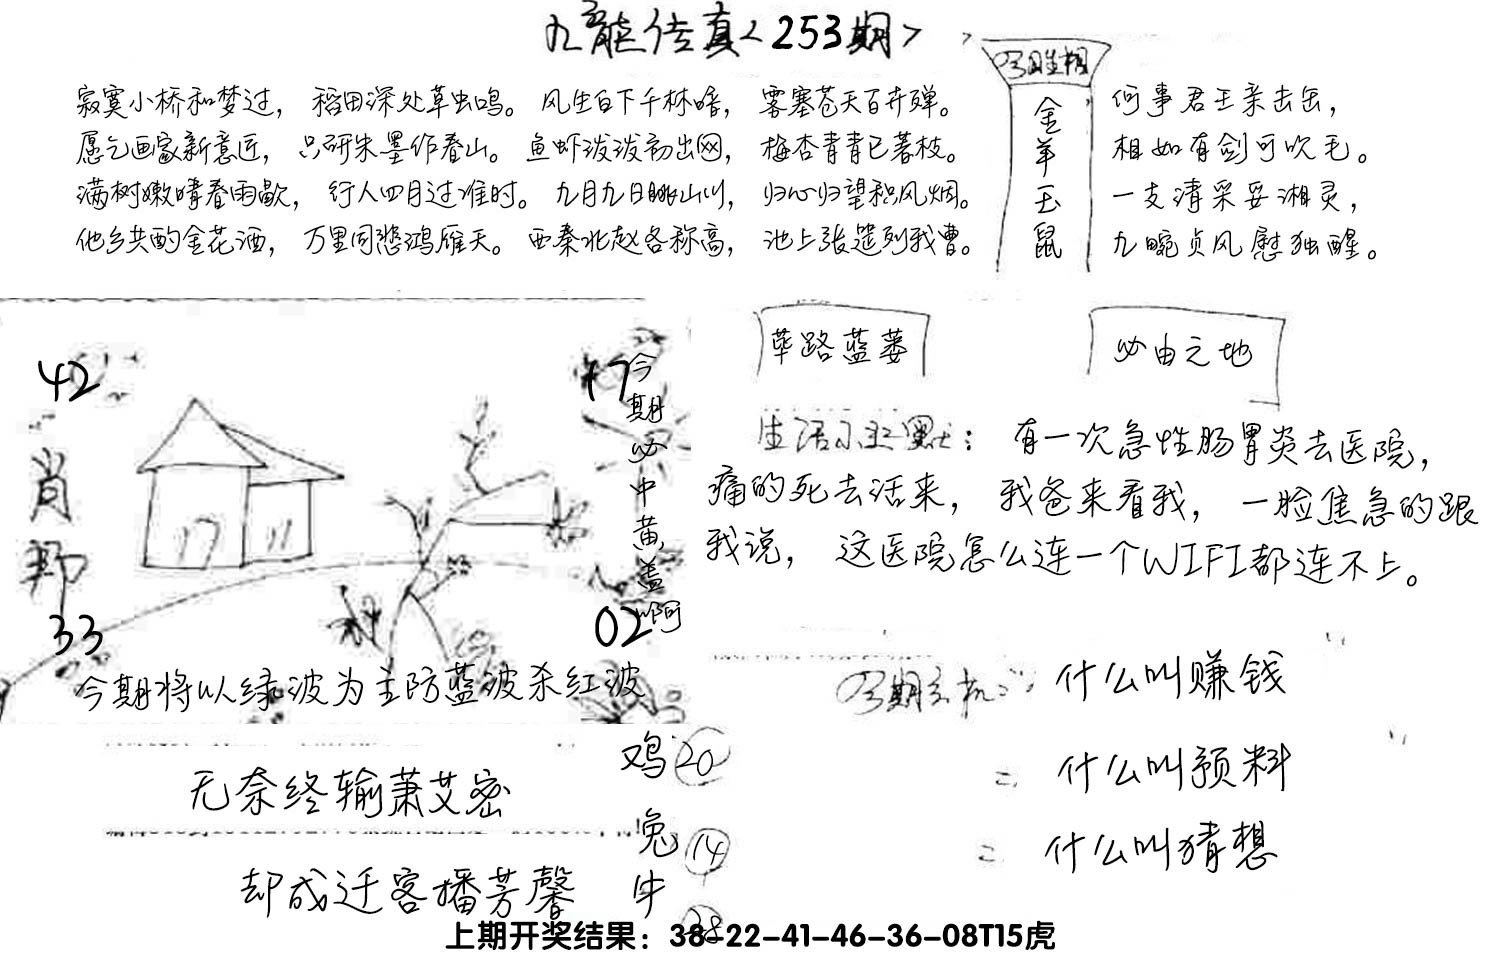 九龍传真<253期>
寂寞小桥和梦过， 稻田深处草虫鸣。 风生白下千林暗， 雾塞苍天百卉殚。
愿乞画家新意匠， 只研朱墨作春山。 鱼虾泼泼初出网， 梅杏青青已著枝。
满树嫩晴春雨歇， 行人四月过淮时。 九月九日眺山川， 归心归望积风烟。
他乡共酌金花酒， 万里同悲鸿雁天。 西秦北赵各称高， 池上张筵列我曹。
金羊玉鼠
何事君王亲击缶，
相如有剑可吹毛。
一支清采妥湘灵，
九畹贞风慰独醒。
42
肖
33
02
今期必中黄盖啊
今期将以绿波为主防蓝波杀红波
荜路蓝蒌
必由之地
有一次急性肠胃炎去医院，
痛的死去活来， 我爸来看我， 一脸焦急的跟
我说， 这医院怎么连一个WIFI都连不上。
什么叫赚钱
什么叫预料
什么叫猜想
无奈终输萧艾密
却成迁客播芳馨
鸡 20
兔 14
牛 28
上期开奖结果：38-22-41-46-36-08T15虎